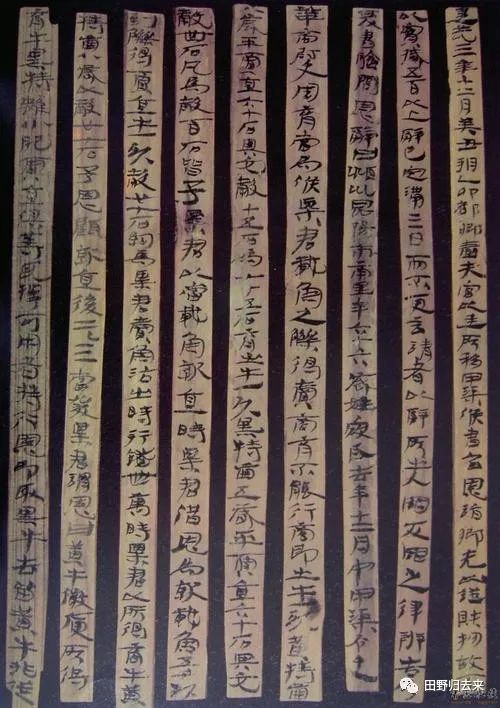 建武三年十二月癸丑朔乙卯都鄉嗇夫宮以廷所移甲渠候書召恩詣鄉先以證財物故
不以實臧五百以上辭已定滿三日而不更言請者以辭所出入罪反罪之律辨告乃
爰書驗問恩辭曰潁川昆陽市南里年六十六歲姓寇氏去年十二月中甲渠令史
華商尉史周育當為候粟君載魚之觻得賣商育不能行商即出牛一頭黃特齒
八歲平賈直六十石與它穀十五石為穀七十五石育出牛一頭黑特齒五歲平賈直六十石與它
穀卌石凡為穀百石皆予粟君以當載魚就直時粟君借恩為就載魚五千頭
到觻得賈直牛一頭穀廿七石約為粟君賣魚沽出時行錢卌萬時粟君以所得商牛黃
特齒八歲以穀廿七石予恩顧就直後二三日當發粟君謂恩曰黃牛微庾所得
育牛黑特雖小肥賈直俱等耳擇可用者持行恩即取黑牛去留黃牛非從
田野归去来